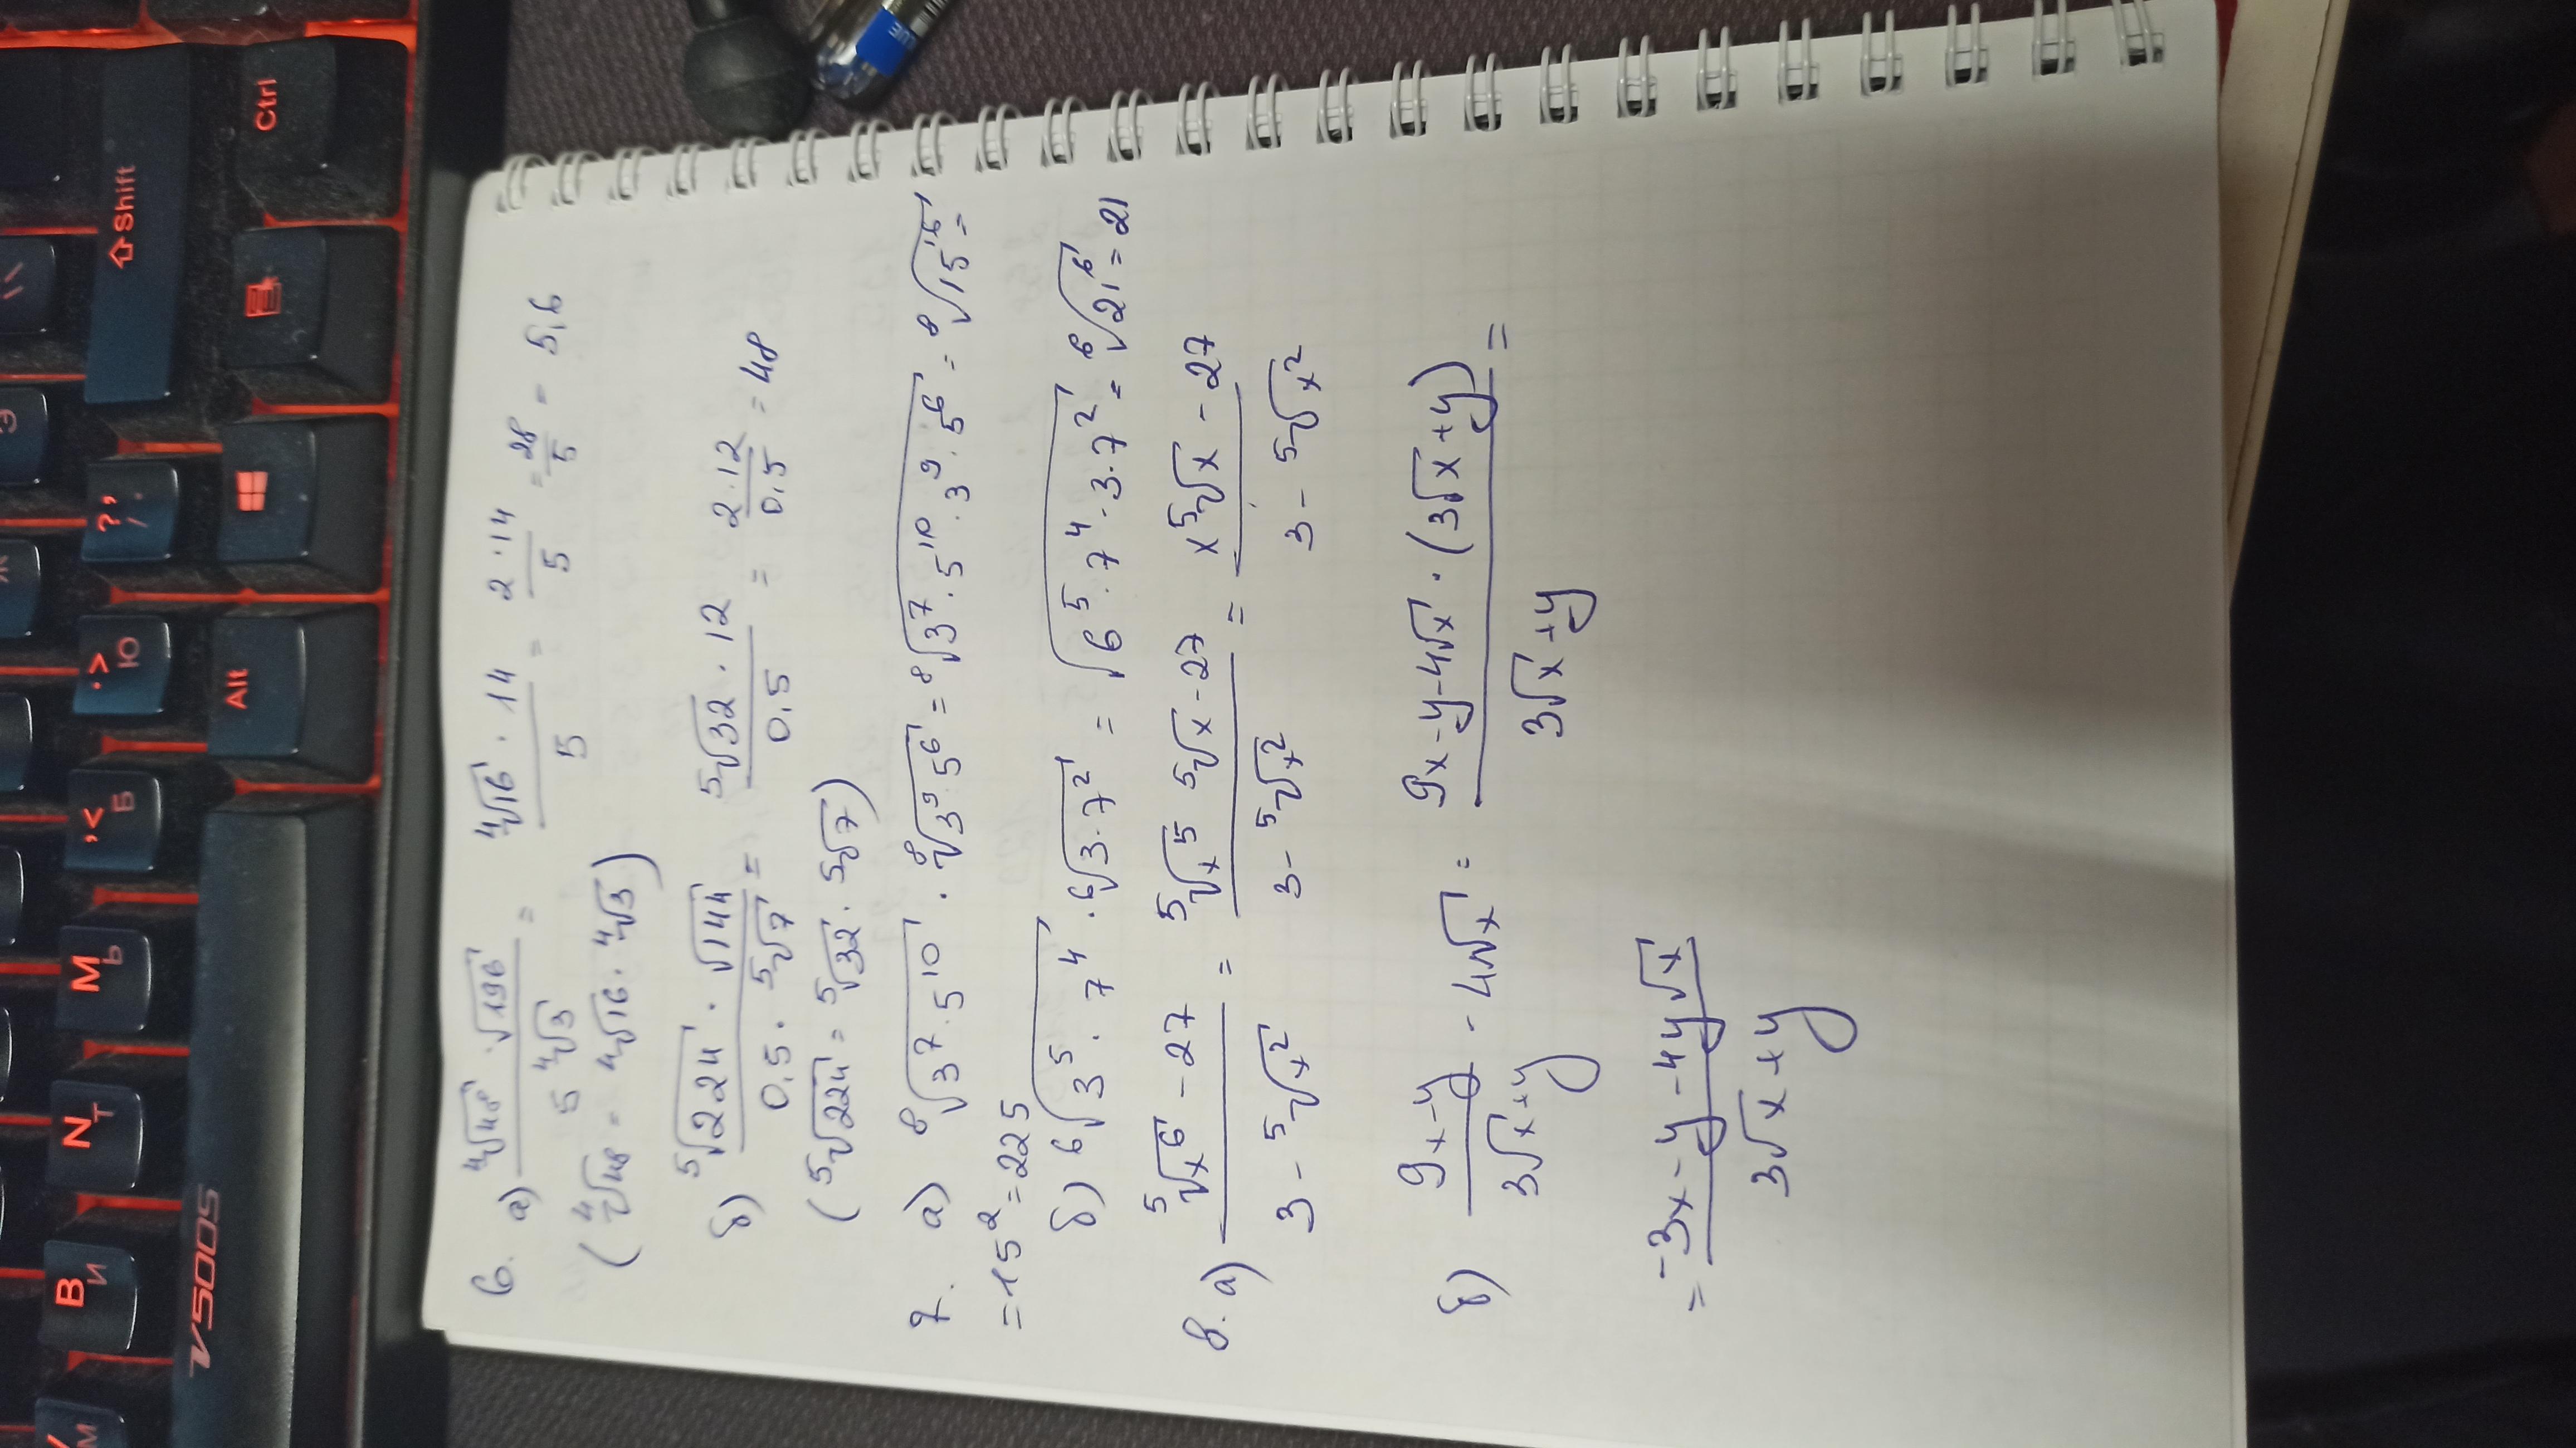 6. а) ⁴√48 · √196 / 5 ⁴√3 = ⁴√16 · 14 / 5 = 2 · 14 / 5 = 28/5 = 5,6
(⁴√48 = ⁴√16 · ⁴√3)
б) ⁵√224 · √144 / 0,5 · ⁵√7 = ⁵√32 · 12 / 0,5 = 2 · 12 / 0,5 = 48
(⁵√224 = ⁵√32 · ⁵√7)
7. а) ⁸√3⁷ · 5¹⁰ · ⁸√3⁹ · 5⁶ = ⁸√3⁷ · 5¹⁰ · 3⁹ · 5⁶ = ⁸√15¹⁶ =
= 15² = 225
б) ⁶√3⁵ · 7⁴ · ⁶√3 · 7² = √6⁵ · 7⁴ · 3 · 7² = ⁶√21⁶ = 21
8. а) ⁵√x⁶ - 27 / 3 - ⁵√x² = ⁵√x⁵ ⁵√x - 27 / 3 - ⁵√x² = x ⁵√x - 27 / 3 - ⁵√x²
б) 9x - y / 3√x + y - 4√x = 9x - y - 4√x · (3√x + y) / 3√x + y =
= -3x - y - 4y√x / 3√x + y
Ctrl
Shift
Э
Ж
?
,
/
>
.
Ю
Alt
<
,
Б
M
Ь
N
Т
B
И
М
V500S